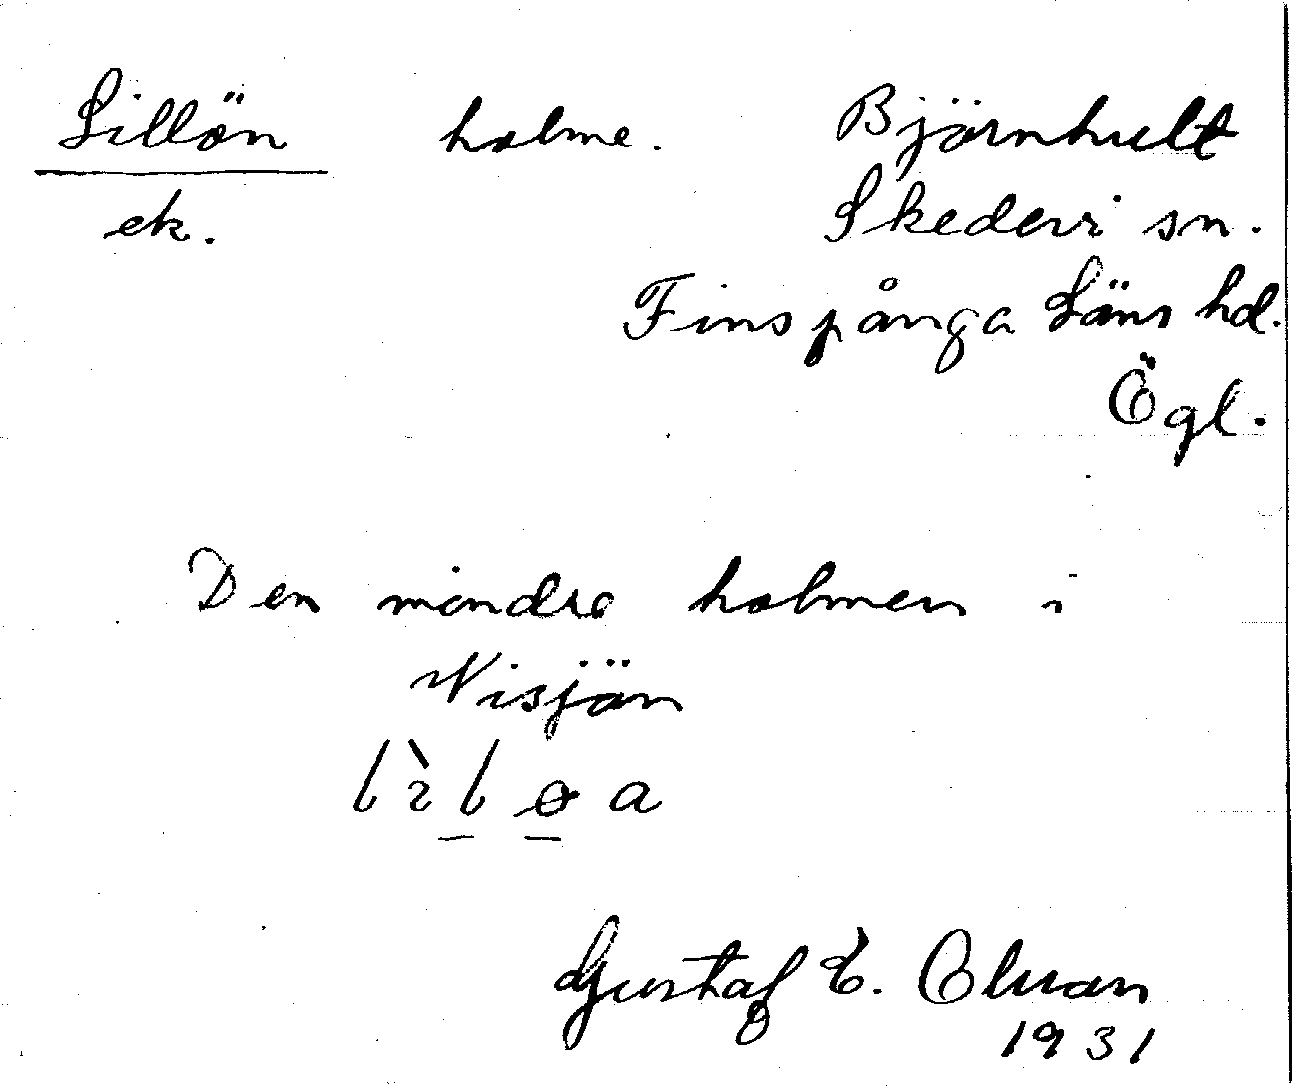 Lillön holme. Björnhult
ek. Skedevi sn.
Finspånga Läns hd.
Ögl.
Den mindre holmen i
Nisjön
Gustaf E. Olsson
1931